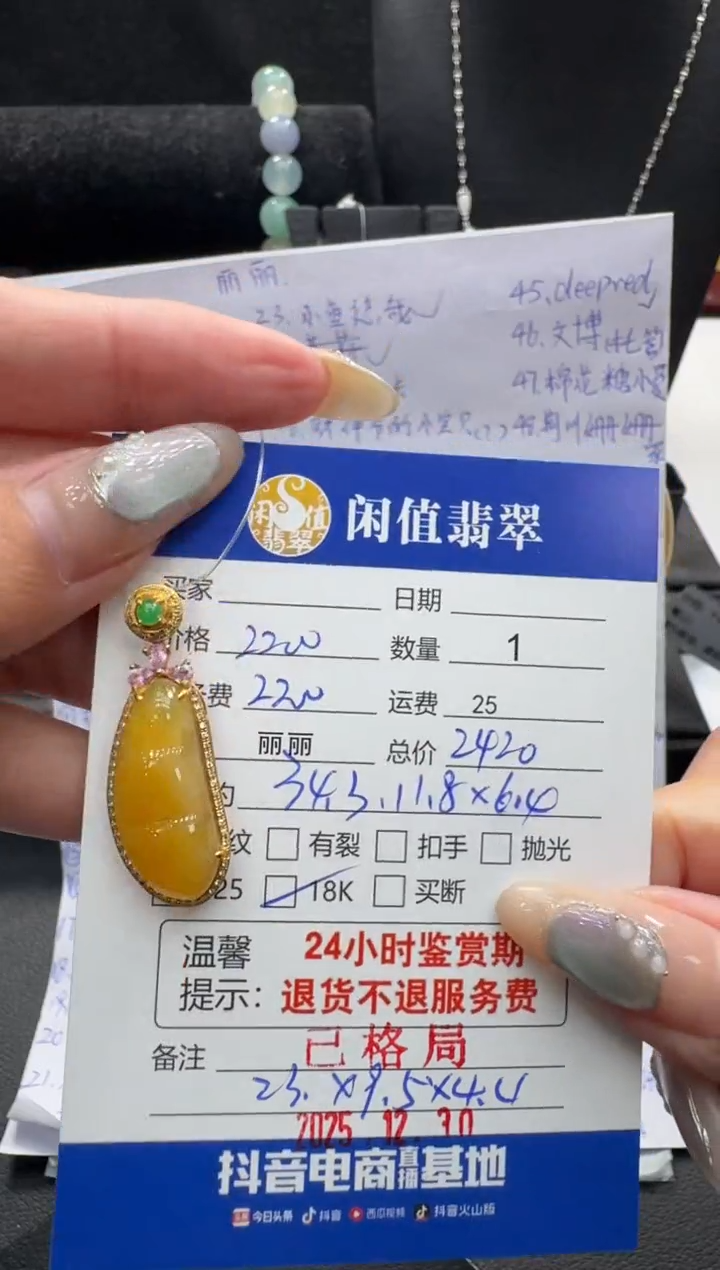 丽丽.
45. deepredy
46. 文博
47. 棉花糖小
闲值翡翠
闲值翡翠
买家
日期
价格 2200
数量 1
费 220
运费 25
丽丽
总价 2420
约 34.3.11.8×6.4
纹 有裂 扣手 抛光
25 18K 买断
温馨提示:
24小时鉴赏期
退货不退服务费
已格局
备注
23.×9.5×4.4
2025.12.30
抖音电商直播基地
今日头条 抖音 西瓜视频 抖音火山版